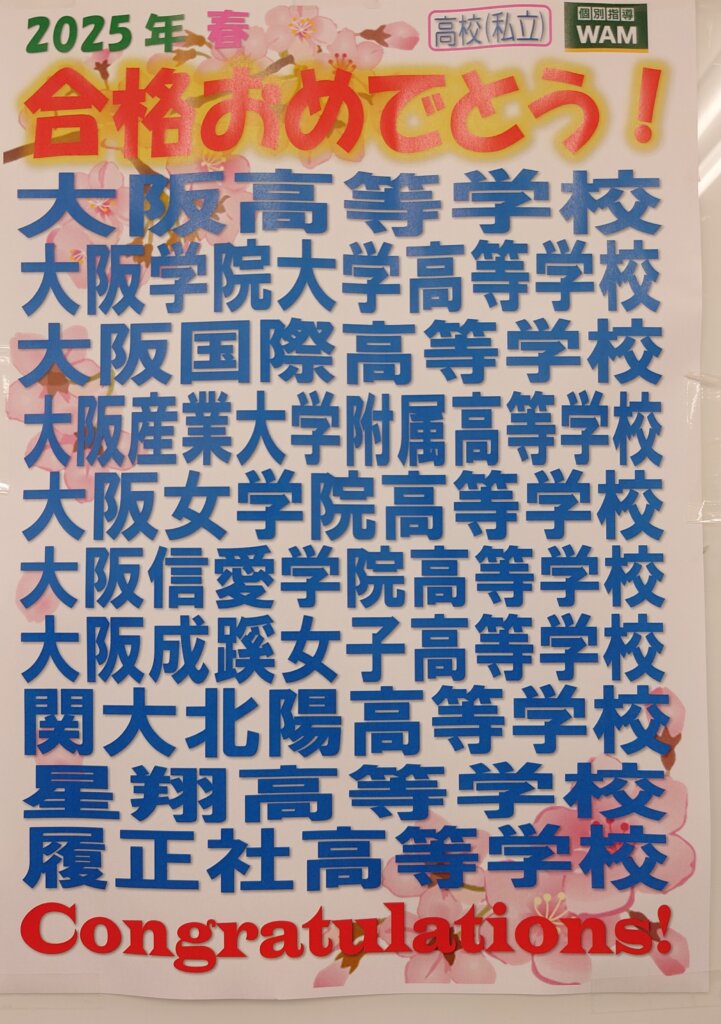 2025年 春 高校(私立) 個別指導 WAM
合格おめでとう！
大阪高等学校
大阪学院大学高等学校
大阪国際高等学校
大阪産業大学附属高等学校
大阪女学院高等学校
大阪信愛学院高等学校
大阪成蹊女子高等学校
関大北陽高等学校
星翔高等学校
履正社高等学校
Congratulations!